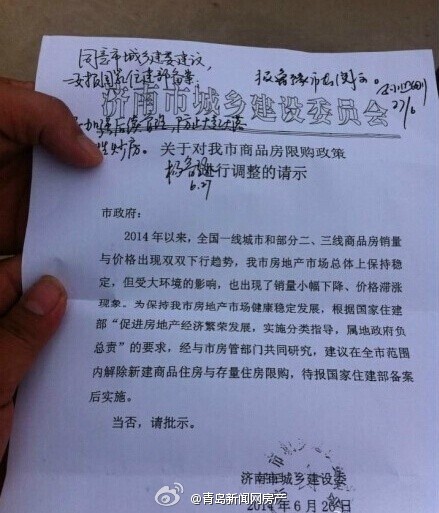 同意市城乡建委建议,
报国家住建部备案
报鲁豫市长阅示。
27/6
济南市城乡建设委员会
加强后续管理,防止大起大落
性炒房。
关于对我市商品房限购政策
进行调整的请示
杨鲁豫
6.27
市政府:
2014 年以来,全国一线城市和部分二、三线商品房销量
与价格出现双双下行趋势,我市房地产市场总体上保持稳
定,但受大环境的影响,也出现了销量小幅下降、价格滞涨
现象。为保持我市房地产市场健康稳定发展,根据国家住建
部“促进房地产经济繁荣发展,实施分类指导,属地政府负
总责”的要求,经与市房管部门共同研究,建议在全市范围
内解除新建商品住房与存量住房限购,待报国家住建部备案
后实施。
当否,请批示。
济南市城乡建设委
2014 年 6 月 26 日
@青岛新闻网房产